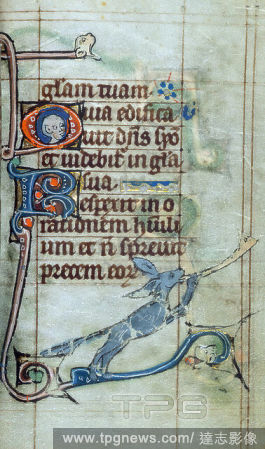 gl̄am tuam
Quia edifica
uit dn̄s syō
et uidebit̄ in gl̄a
sua
Respexit in o
rationem humili
um et n̄ spreuit
precem eoꝝ
TPG
www.tpgnews.com/ 達志影像